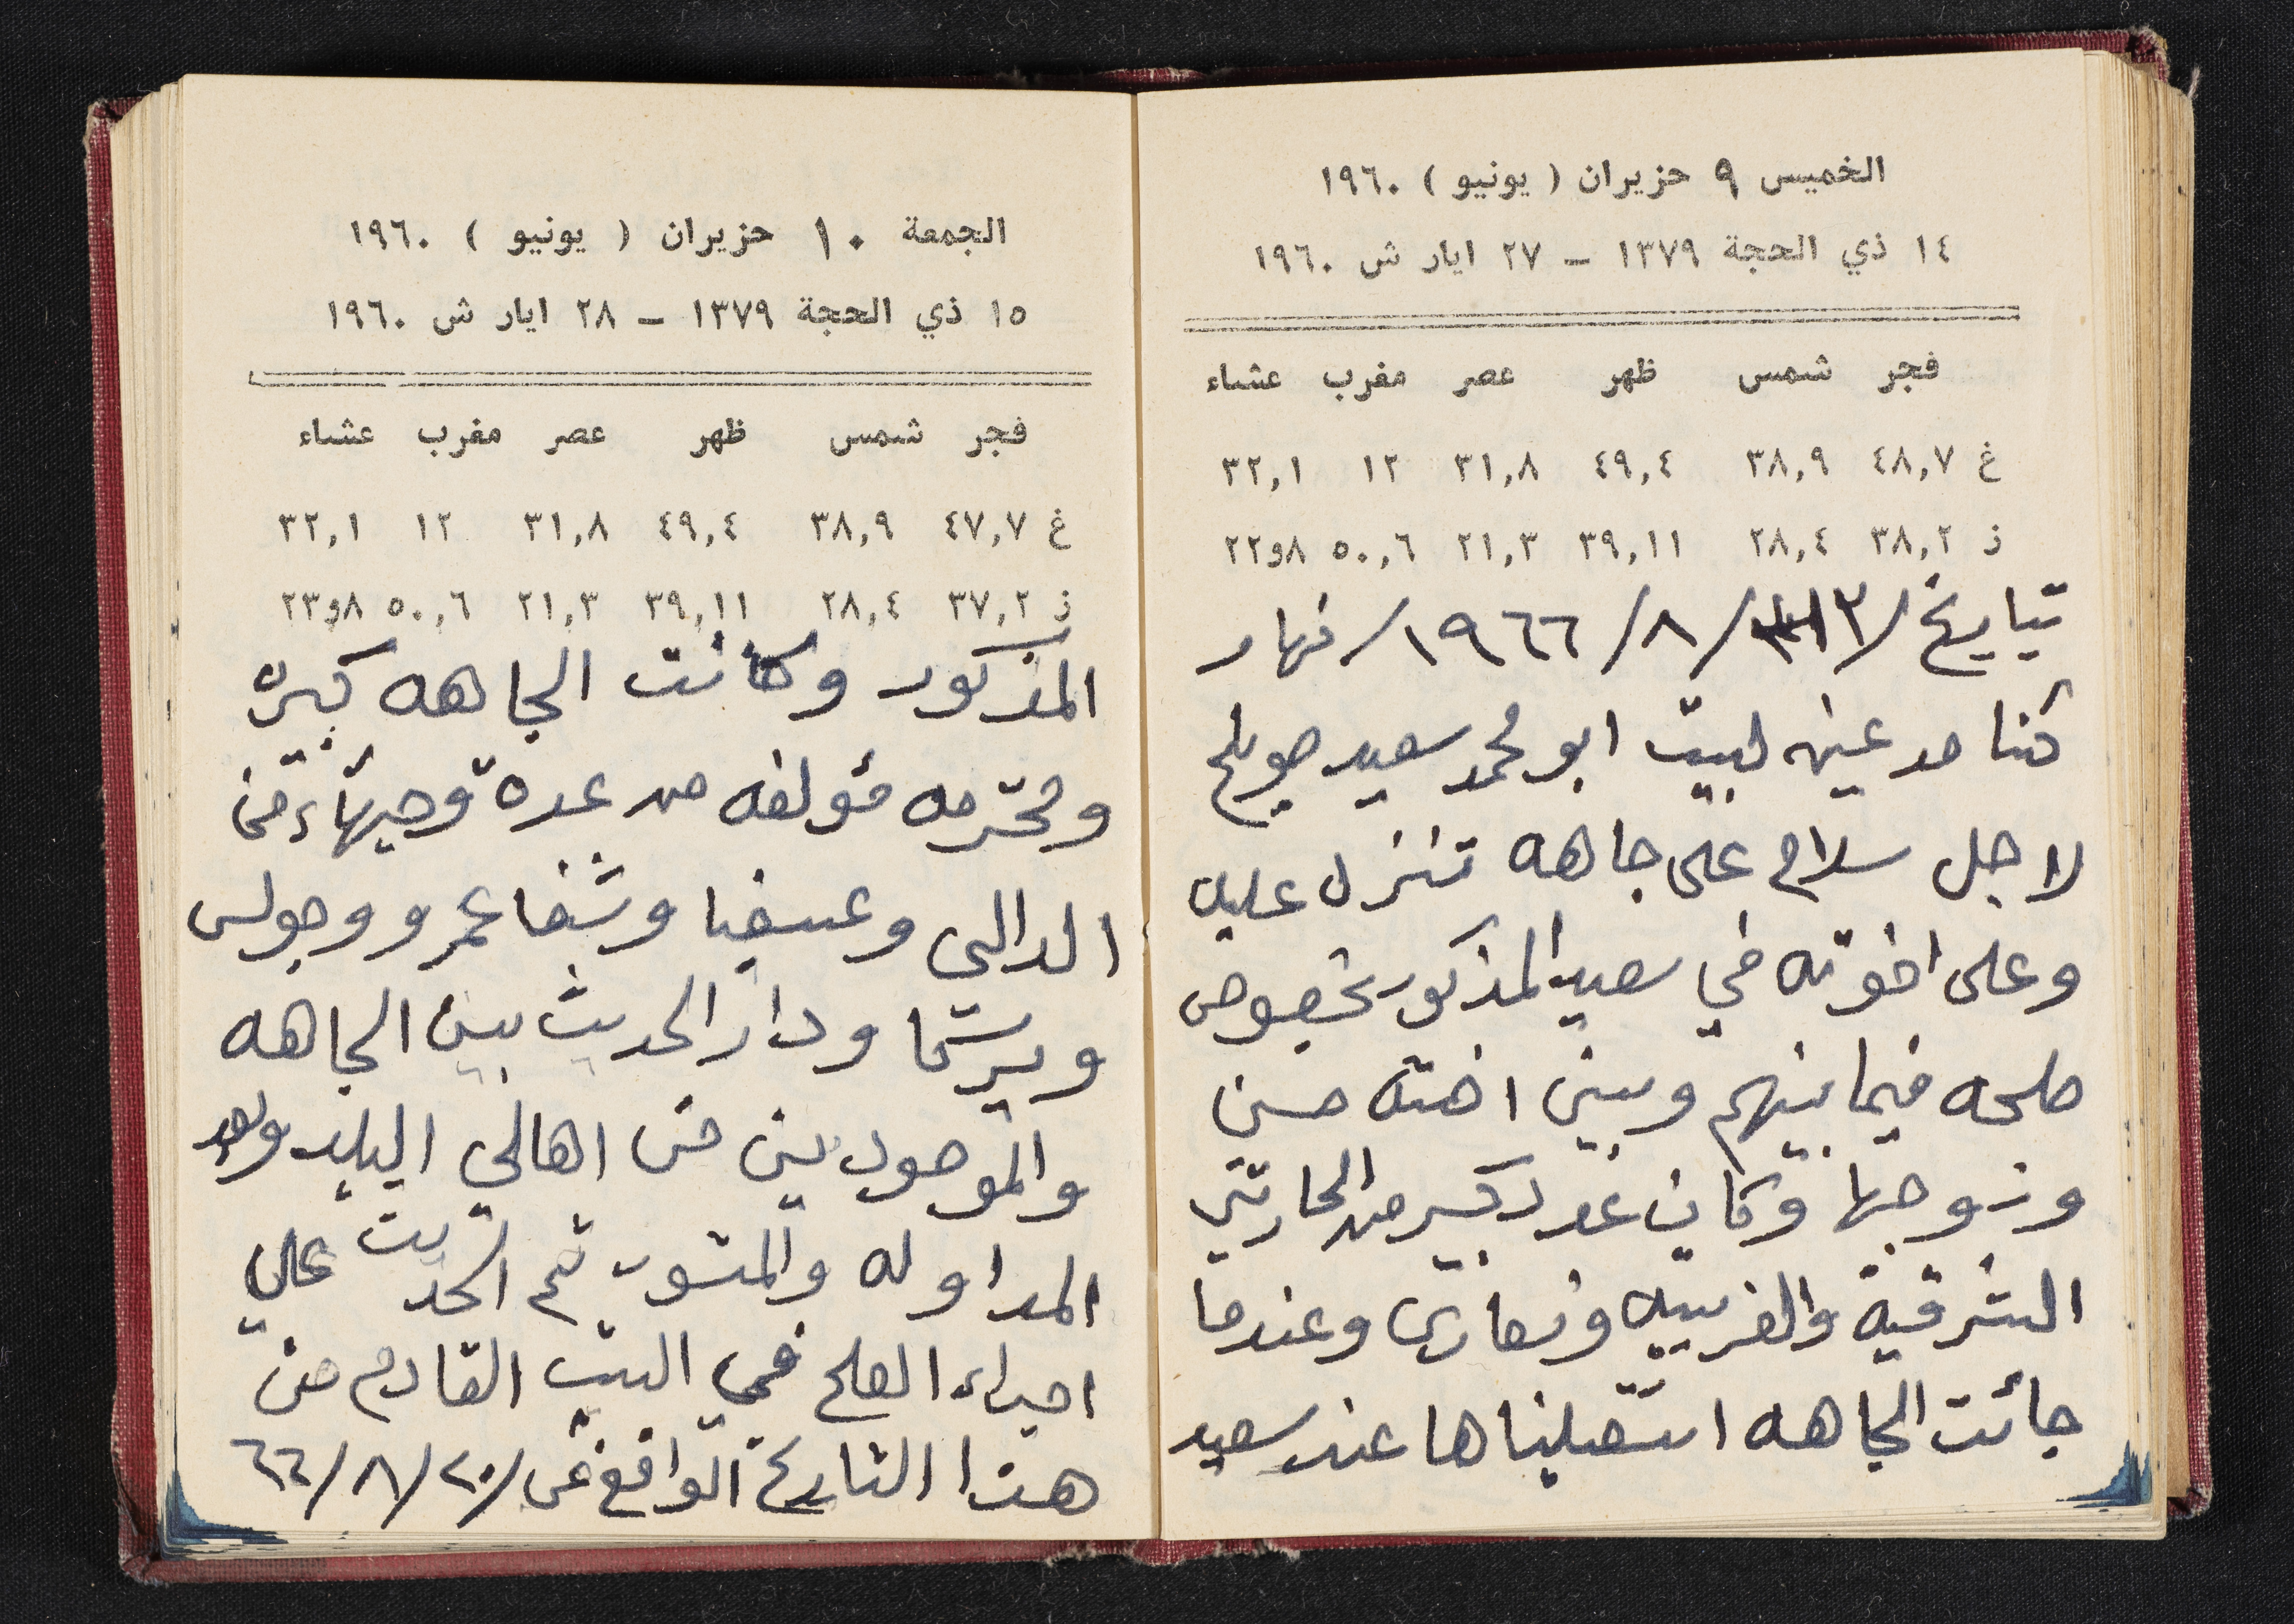 الخميس ٩ حزيران ( يونيو ) ١٩٦٠
١٤ ذي الحجة ١٣٧٩ – ٢٧ ايار ش ١٩٦٠
فجر شمس ظهر عصر مغرب عشاء
غ ٤٨,٧ ٣٨,٩ ٤٩,٤ ٣١,٨ ١٢ ٣٢,١
ز ٣٨,٢ ٢٨,٤ ٣٩,١١ ٢١,٣ ٥٠,٦ ٢٢و٨
بتاريخ /١٣/٨/١٩٦٦/ نهار
كنا مدعين لبيت ابو محمد سعيد صويلح
لاجل سلام على جاهه تنزل عليه
وعلى اخوته في سعيد المذكور بخصوص
صلحه فيما بينهم وبين اخته حسن
وزوجها وكان عدد كبير من الحارتين
الشرقية والغربيه ونصارى وعندما
جائت الجاهه استقبلناها عند سعيد
الجمعة ١٠ حزيران ( يونيو ) ١٩٦٠
١٥ ذي الحجة ١٣٧٩ – ٢٨ ايار ش ١٩٦٠
فجر شمس ظهر عصر مغرب عشاء
غ ٤٧,٧ ٣٨,٩ ٤٩,٤ ٣١,٨ ١٢ ٣٢,١
ز ٣٧,٢ ٢٨,٤ ٣٩,١١ ٢١,٣ ٥٠,٦ ٢٣و٨
المذكور وكانت الجاهه كبيره
ومحترمه مؤلفه من عدة وجهاء من
الدالي وعسفيا وشفاعمرو وجولس
ويركا ودار الحديث بين الجاهه
والموجودين من اهالي البلد وبعد
المداوله والمشور تم الحديث على
اجراء الصلح في السبت القادم من
هذا التاريخ الواقع في /٢٠/٨/٦٦